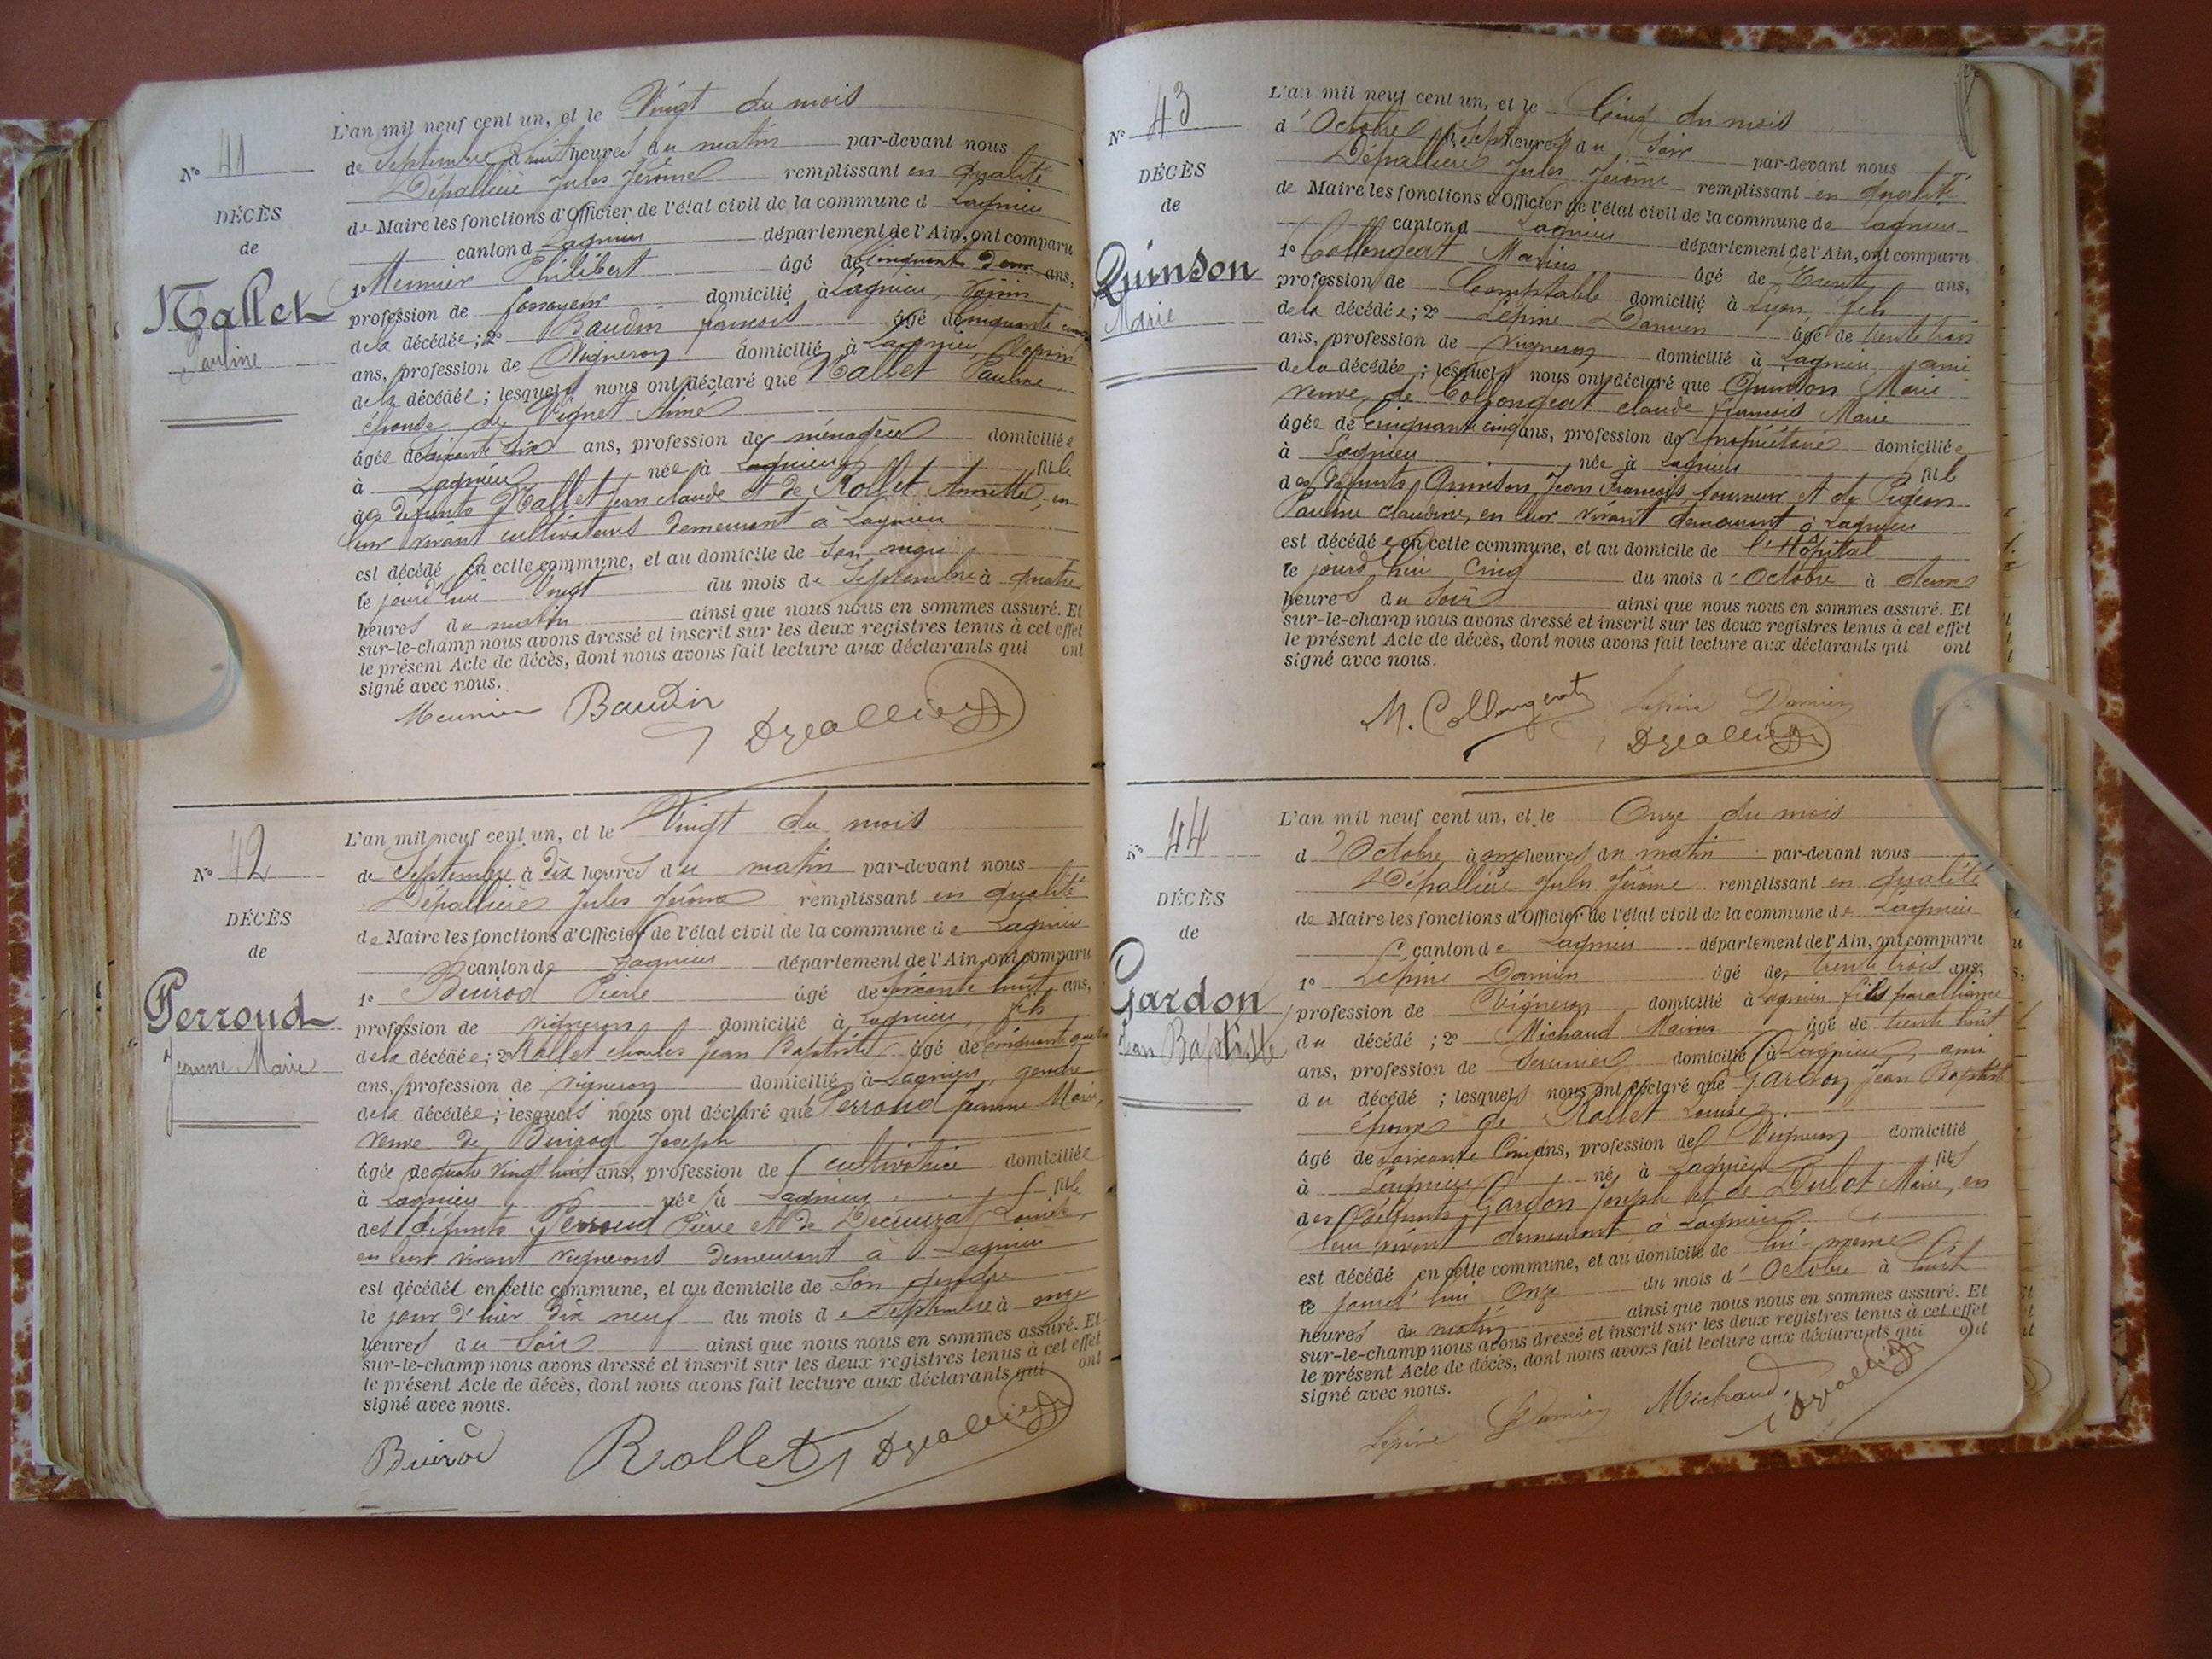 N° 41
DÉCÈS
de
Nallet
Pauline
L'an mil neuf cent un, et le Vingt du mois
de Septembre à huit heures du matin par-devant nous
Dépallière Jules Jérôme remplissant en qualité
de Maire les fonctions d'Officier de l'état civil de la commune d Lagnieu
canton d Lagnieu département de l'Ain, ont comparu
1° Meunier Philibert âgé de Cinquante deux ans,
profession de fossoyeur domicilié à Lagnieu, voisin
de la décédée; 2° Baudin francois âgé de cinquante cinq
ans, profession de Vigneron domicilié à Lagnieu, Voisin
de la décédée; lesquels nous ont déclaré que Nallet Pauline,
épouse de Vignet Aimé
âgée de soixante six ans, profession de ménagère domiciliée
à Lagnieu née à Lagnieu fille
des défunts Nallet Jean claude et de Rollet Annette, en
leur vivant cultivateurs demeurant à Lagnieu
est décédé en cette commune, et au domicile de son mari
le jourd'hui Vingt du mois de Septembre à quatre
heures du matin ainsi que nous nous en sommes assuré. Et
sur-le-champ nous avons dressé et inscrit sur les deux registres tenus à cet effet
le présent Acte de décès, dont nous avons fait lecture aux déclarants qui ont
signé avec nous.
Meunier Baudin
Dépallière
N° 42
DÉCÈS
de
Perroud
Jeanne Marie
L'an mil neuf cent un, et le Vingt du mois
de Septembre à dix heures du matin par-devant nous
Dépallière Jules Jérôme remplissant en qualité
de Maire les fonctions d'Officier de l'état civil de la commune de Lagnieu
canton de Lagnieu département de l'Ain, ont comparu
1° Buirod Pierre âgé de soixante huit ans,
profession de vigneron domicilié à Lagnieu, fils
de la décédée; 2° Rollet charles Jean Baptiste âgé de cinquante quatre
ans, profession de vigneron domicilié à Lagnieu, gendre
de la décédée; lesquels nous ont déclaré que Perroud Jeanne Marie,
veuve de Buirod Joseph
âgée de quatre vingt huit ans, profession de cultivatrice domiciliée
à Lagnieu née à Lagnieu fille
des défunts Perroud Pierre et de Louise,
en leur vivant vignerons demeurant à Lagnieu
est décédée en cette commune, et au domicile de son gendre
le jour d'hier dix neuf du mois de Septembre à onze
heures du soir ainsi que nous nous en sommes assuré. Et
sur-le-champ nous avons dressé et inscrit sur les deux registres tenus à cet effet
le présent Acte de décès, dont nous avons fait lecture aux déclarants qui ont
signé avec nous.
Buirod Rollet Dépallière
N° 43
DÉCÈS
de
Quinson
Marie
L'an mil neuf cent un, et le Cinq du mois
d'Octobre à Sept heures du Soir par-devant nous
Dépallière Jules Jérôme remplissant en qualité
de Maire les fonctions d'Officier de l'état civil de la commune de Lagnieu
canton d Lagnieu département de l'Ain, ont comparu
1° Collongeat Marius âgé de Trente ans,
profession de Comptable domicilié à Lyon, fils
de la décédée; 2° Lépine Damien âgé de trente trois
ans, profession de Vigneron domicilié à Lagnieu, ami
de la décédée; lesquels nous ont déclaré que Quinson Marie
veuve de Collongeat claude françois Marie
âgée de Cinquante cinq ans, profession de propriétaire domiciliée
à Lagnieu née à Lagnieu fil
des défunts Quinson Jean François tourneur et de Pigeon
Pauline claudine, en leur vivant demeurant à Lagnieu
est décédée en cette commune, et au domicile de l'Hôpital
le jourd'hui Cinq du mois d'Octobre à deux
heures du soir ainsi que nous nous en sommes assuré. Et
sur-le-champ nous avons dressé et inscrit sur les deux registres tenus à cet effet
le présent Acte de décès, dont nous avons fait lecture aux déclarants qui ont
signé avec nous.
M. Collongeat Lépine Damien
Dépallière
N° 44
DÉCÈS
de
Gardon
Jean Baptiste
L'an mil neuf cent un, et le Onze du mois
d'Octobre à onze heures du matin par-devant nous
Dépallière Jules Jérôme remplissant en qualité
de Maire les fonctions d'Officier de l'état civil de la commune de Lagnieu
canton de Lagnieu département de l'Ain, ont comparu
1° Lépine Damien âgé de trente trois ans,
profession de Vigneron domicilié à Lagnieu fils par alliance
du décédé; 2° Michaud Marius âgé de trente huit
ans, profession de Serrurier domicilié à Lagnieu, ami
du décédé; lesquels nous ont déclaré que Gardon Jean Baptiste
époux de Rollet Louise
âgé de Soixante Cinq ans, profession de Vigneron domicilié
à Lagnieu né à Lagnieu fils
des défunts Gardon Joseph et de Dulot Marie, en
leur vivant demeurant à Lagnieu
est décédé en cette commune, et au domicile de lui-même
le jourd'hui Onze du mois d'Octobre à huit
heures du matin ainsi que nous nous en sommes assuré. Et
sur-le-champ nous avons dressé et inscrit sur les deux registres tenus à cet effet
le présent Acte de décès, dont nous avons fait lecture aux déclarants qui ont
signé avec nous.
Lépine Damien Michaud Dépallière